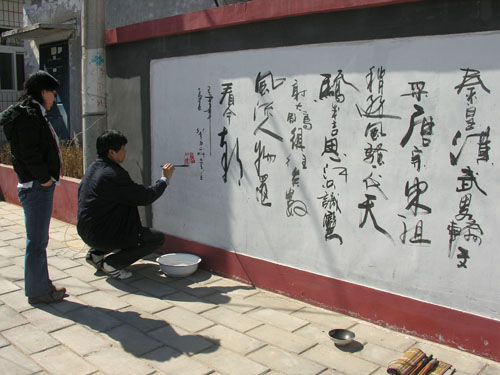 秦皇漢武略輸文
采唐宗宋祖
稍遜風騷一代天
驕成吉思汗只識彎
射大鵰俱往矣數
風流人物還
看今朝